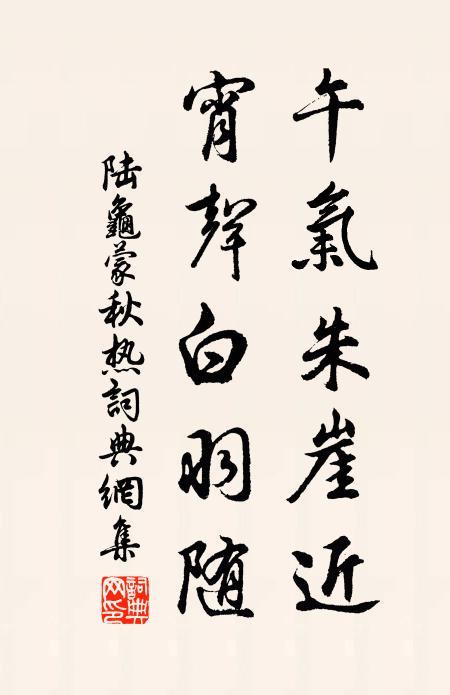 午氣朱崖近
宵聲白羽随
陆龜蒙秋热詞典網集
詞典网印